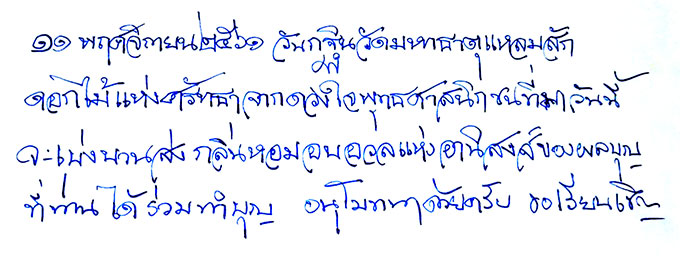 ๑๑ พฤศจิกายน ๒๕๖๑ วันกฐินวัดมหาธาตุแหลมสัก
ดอกไม้แห่งศรัทธาจากดวงใจพุทธศาสนิกชนที่มาวันนี้
จะเบ่งบานส่งกลิ่นหอมอบอวลแห่งอานิสงส์ของผลบุญ
ที่ท่านได้ร่วมทำบุญ อนุโมทนาด้วยครับ ขอเรียนเชิญ